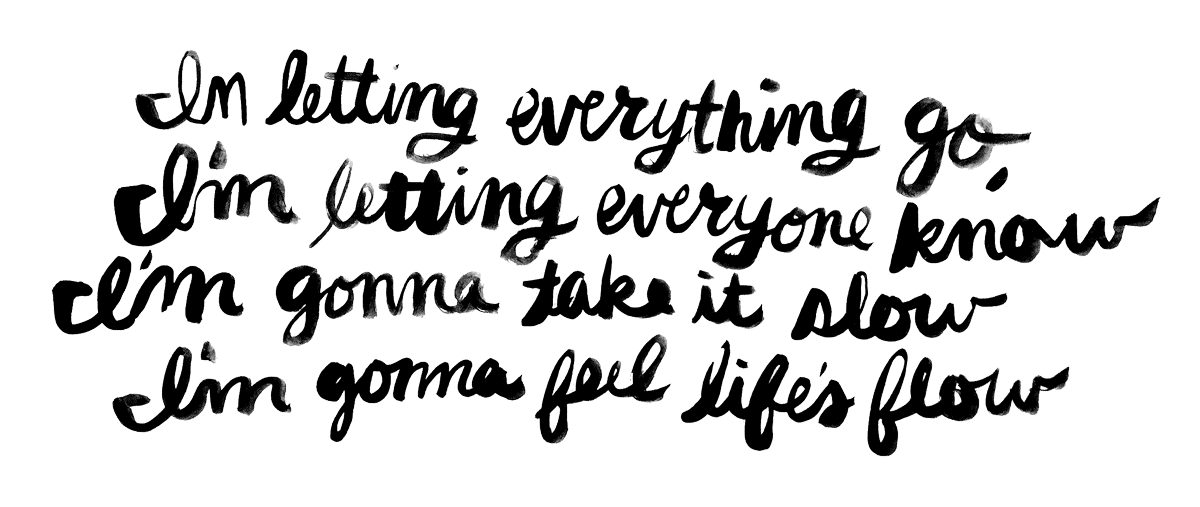 In letting everything go
I'm letting everyone know
I'm gonna take it slow
I'm gonna feel life's flow